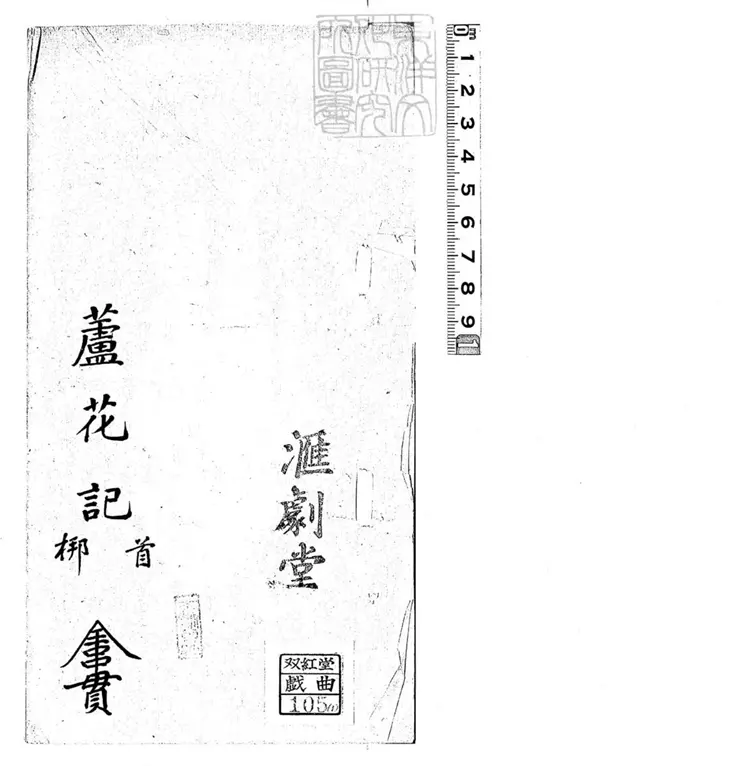 東洋文
化研究
所圖書
滙劇堂
蘆花記
首
梆
全書貫
双紅堂
戲曲
105(1)
m
0 1 2 3 4 5 6 7 8 9 1